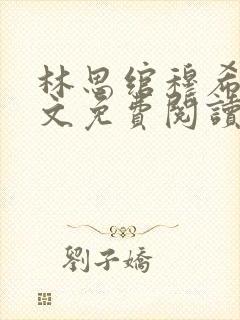 林思綰穆希
文免費閱讀
劉子嬌